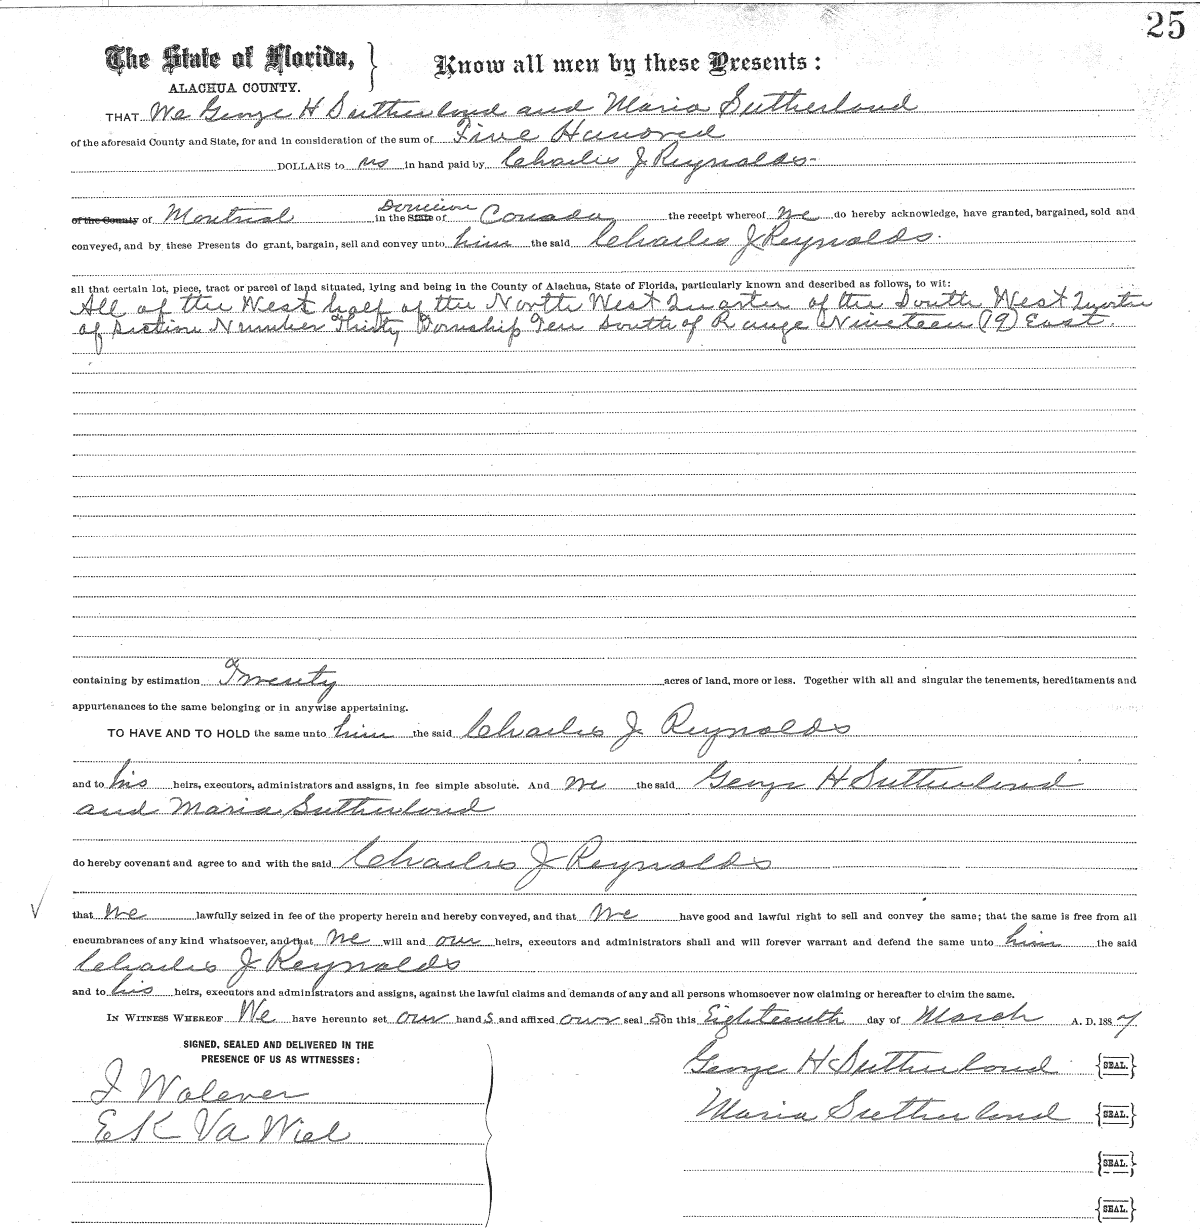 25
The State of Florida, } Know all men by these Presents:
ALACHUA COUNTY.
THAT We George H Sutherland and Maria Sutherland
of the aforesaid County and State, for and in consideration of the sum of Five Hundred
DOLLARS to us in hand paid by Charles J Reynolds
of the County of Montreal in the State Dominion of Canada the receipt whereof we do hereby acknowledge, have granted, bargained, sold and
conveyed, and by these Presents do grant, bargain, sell and convey unto him the said Charles J Reynolds.
all that certain lot, piece, tract or parcel of land situated, lying and being in the County of Alachua, State of Florida, particularly known and described as follows, to wit:
All of the West half of the North West Quarter of the South West Quarter
of Section Number Thirty Township Ten South of Range Nineteen (19) East.
containing by estimation Twenty acres of land, more or less. Together with all and singular the tenements, hereditaments and
appurtenances to the same belonging or in anywise appertaining.
TO HAVE AND TO HOLD the same unto him the said Charles J Reynolds
and to his heirs, executors, administrators and assigns, in fee simple absolute. And we the said George H Sutherland
and Maria Sutherland
do hereby covenant and agree to and with the said Charles J Reynolds
that we lawfully seized in fee of the property herein and hereby conveyed, and that we have good and lawful right to sell and convey the same; that the same is free from all
encumbrances of any kind whatsoever, and that we will and our heirs, executors and administrators shall and will forever warrant and defend the same unto him the said
Charles J Reynolds
and to his heirs, executors and administrators and assigns, against the lawful claims and demands of any and all persons whomsoever now claiming or hereafter to claim the same.
IN WITNESS WHEREOF We have hereunto set our hands and affixed our seals on this Eighteenth day of March A. D. 1887
SIGNED, SEALED AND DELIVERED IN THE
PRESENCE OF US AS WITNESSES:
George H Sutherland {SEAL.}
J Wolever
Maria Sutherland {SEAL.}
E K Va Wiel
{SEAL.}
{SEAL.}